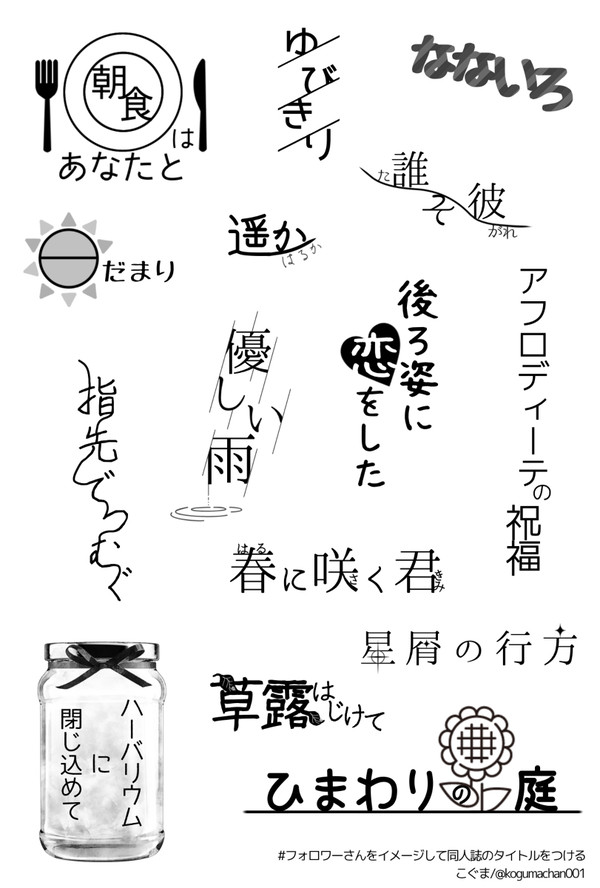 朝食は
あなたと
ゆびきり
なないろ
誰そ彼
たがれ
遥か
はるか
だまり
後ろ姿に
恋をした
アフロディーテの祝福
優しい雨
指先でつむぐ
春に咲く君
はる
さ
きみ
星屑の行方
草露はじけて
ハーバリウム
に
閉じ込めて
ひまわりの庭
#フォロワーさんをイメージして同人誌のタイトルをつける
こぐま/@kogumachan001